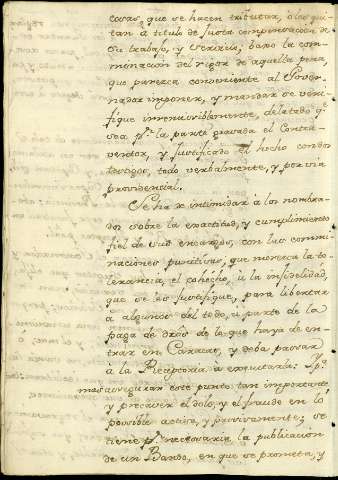 cosas, que se hacen tributar, ó les qui
tan á titulo de justa compensacion de
su trabajo, y servicio, baxo la com-
minacion del rigor de aquella pena,
que parezca conveniente al Gover-
nador imponer, y mandar se veri-
fique irremisiblemente, delatado qe
sea pr. la parte gravada el Contra-
ventor, y justificado el hecho con dos
testigos, todo verbalmente, y por via
providencial.
Se ha de intimidar á los nombra-
dos sobre la exactitud, y cumplimiento
fiel de sus encargos, con las commi-
naciones punitivas, que merezca la to-
lerancia, el cohecho, ú la infidelidad,
que se les justifique, para libertar
á algunos del todo, ú parte de la
paga de dros de lo que haya de en-
trar en Caracas, y deba pasar
á la Receptoria á exquitarla: Y pa
mas asegurar este punto tan importante,
y precaver el dolo, y el fraude en lo
posible activa, y pasivamente, se
tiene pr. necesaria la publicacion
de un Bando, en que se prometa, y